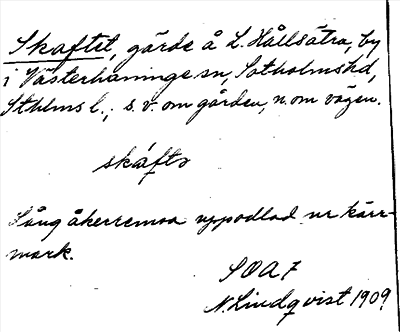 Skaftet, gärde å L. Hållsätra, by
i Västerhaninge sn, Sotholms hd,
Sthlms l.; s.v. om gården, n. om vägen.
skáftə
Lång åkerremsa uppodlad ur kärr-
mark.
SOA 7
N. Lindqvist 1909